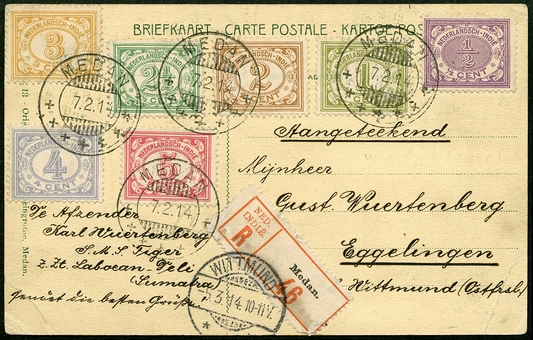 BRIEFKAART - CARTE POSTALE - KARTOEPOST
NEDERLANDSCH-INDIË
3
CENT
NEDERLANDSCH-INDIË
2½
CENT
NEDERLANDSCH-INDIË
2
CENT
NEDERLANDSCH-INDIË
1
CENT
NEDERLANDSCH-INDIË
1/2
CENT
MEDAN
7.2.14
MEDAN
7.2.14
MEDAN
7.2.14
NEDERLANDSCH-INDIË
4
CENT
NEDERLANDSCH-INDIË
5
CENT
MEDAN
7.2.14
Aangeteekend
Mijnheer
Gust Wuertenberg
Eggelingen
Wittmund (Ostfrsl.)
De Afzender
Karl Wuertenberg
S.M.S. Tiger
z. Zt. Laboean-Deli
(Sumatra)
sendet die besten Grüße
NED.
INDIË
R
Medan.
46
WITTMUND
3.14.10-11V.
Medan.